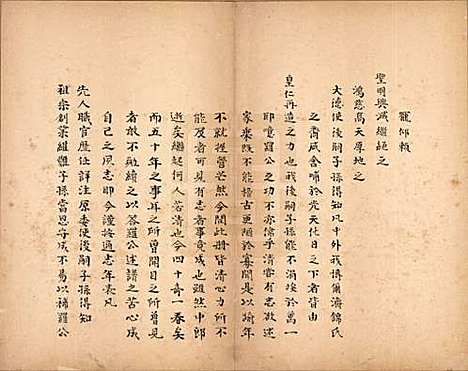 寵仰賴
聖明興滅繼絕之
鴻慈高天厚地之
大德使後嗣子孫得知凡中外我博爾濟錦氏
之裔咸含哺於光天化日之下者皆由
皇仁再造之力也我後嗣子孫能不涓埃於萬一
即噫羅公之功不亦偉乎清審有志敬述
家乘既不能稽古更陋於寡聞是以踰年
不就捏管茫然今此冊皆清心力所不
能及者可見有志者事竟成也雖然中郎
逝矣繼起何人若清也今四十奇一春矣
而五十年之事耳之所曾聞目之所曾見
者敢不續之以答羅公述譜之苦心成
自己之夙志即今謹按過志年表凡
先人職官歷任詳注原委使後嗣子孫得知
祖宗創業維艱子孫當思守成不易以補羅公